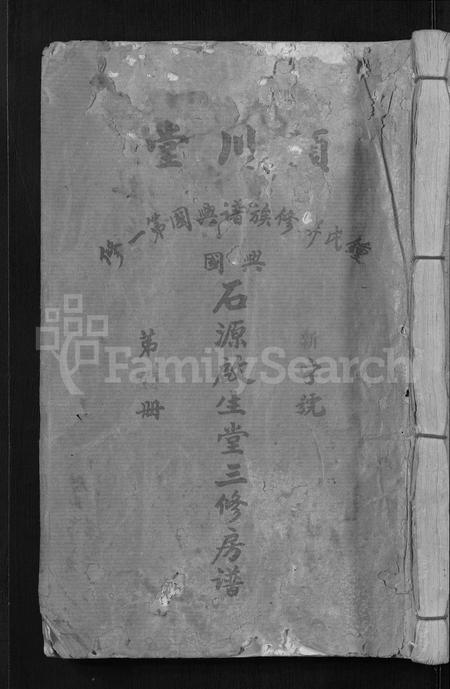 潁川堂
鍾氏才修族譜興國第一修
興國
石源啟生堂三修房譜
新字號
第 冊
FamilySearch